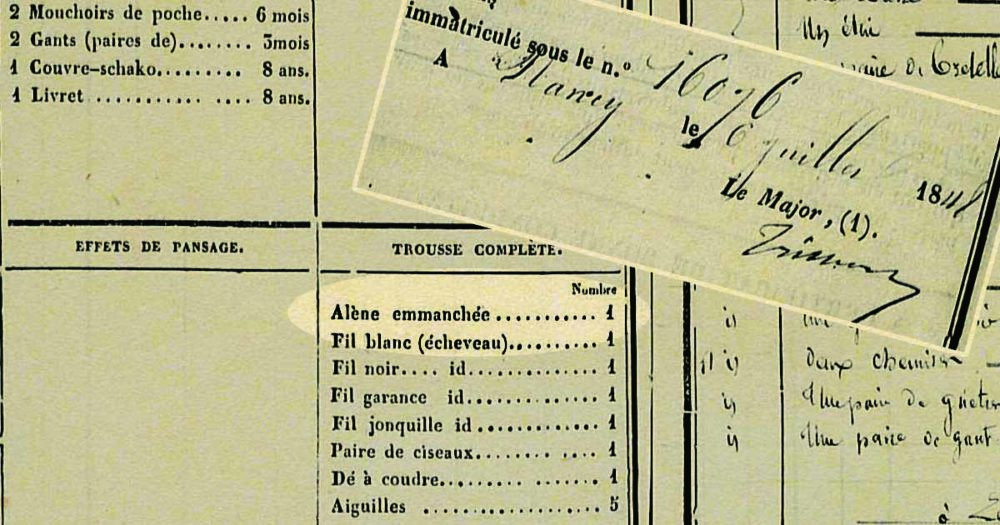 2 Mouchoirs de poche..... 6 mois
2 Gants (paires de)........ 3mois
1 Couvre-schako......... 8 ans.
1 Livret ........... .... 8 ans.
immatriculé sous le n.º 16076
A Nancy le 6 Juillet 1848
Le Major, (1).
Un étui
paire de
EFFETS DE PANSAGE.
TROUSSE COMPLÈTE.
Nombre
Alène emmanchée ........... 1
Fil blanc (écheveau).......... 1
Fil noir.... id.............. 1
Fil garance id.............. 1
Fil jonquille id............. 1
Paire de ciseaux........ .... 1
Dé à coudre......... ....... 1
Aiguilles .................. 5
deux chemises
Une paire de guêtres
Une paire de gant
à